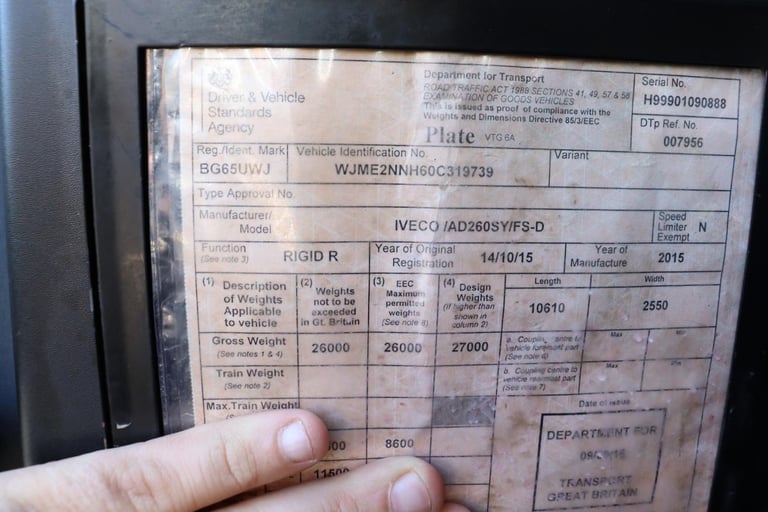 Driver & Vehicle
Standards
Agency
Department for Transport
ROAD TRAFFIC ACT 1988 SECTIONS 41, 49, 57 & 58
EXAMINATION OF GOODS VEHICLES
This is issued as proof of compliance with the
Weights and Dimensions Directive 85/3/EEC
Plate VTG 6A
Serial No.
H99901090888
DTp Ref. No.
007956
Reg./Ident. Mark
BG65UWJ
Vehicle Identification No.
WJME2NNH60C319739
Variant
Type Approval No.
Manufacturer/
Model
IVECO /AD260SY/FS-D
Speed
Limiter
Exempt
N
Function
(See note 3)
RIGID R
Year of Original
Registration
14/10/15
Year of
Manufacture
2015
(1) Description
of Weights
Applicable
to vehicle
(2) Weights
not to be
exceeded
in Gt. Britain
(3) EEC
Maximum
permitted
weights
(See note 8)
(4) Design
Weights
(if higher than
shown in
column 2)
Length
10610
Width
2550
Gross Weight
(See notes 1 & 4)
26000
26000
27000
a. Coupling centre to
vehicle foremost part
(See note 6)
Max
Min
Train Weight
(See note 2)
b. Coupling centre to
vehicle rearmost part
(See note 7)
Max
Min
Max. Train Weight
Date of issue
8600
11500
DEPARTMENT FOR
TRANSPORT
GREAT BRITAIN